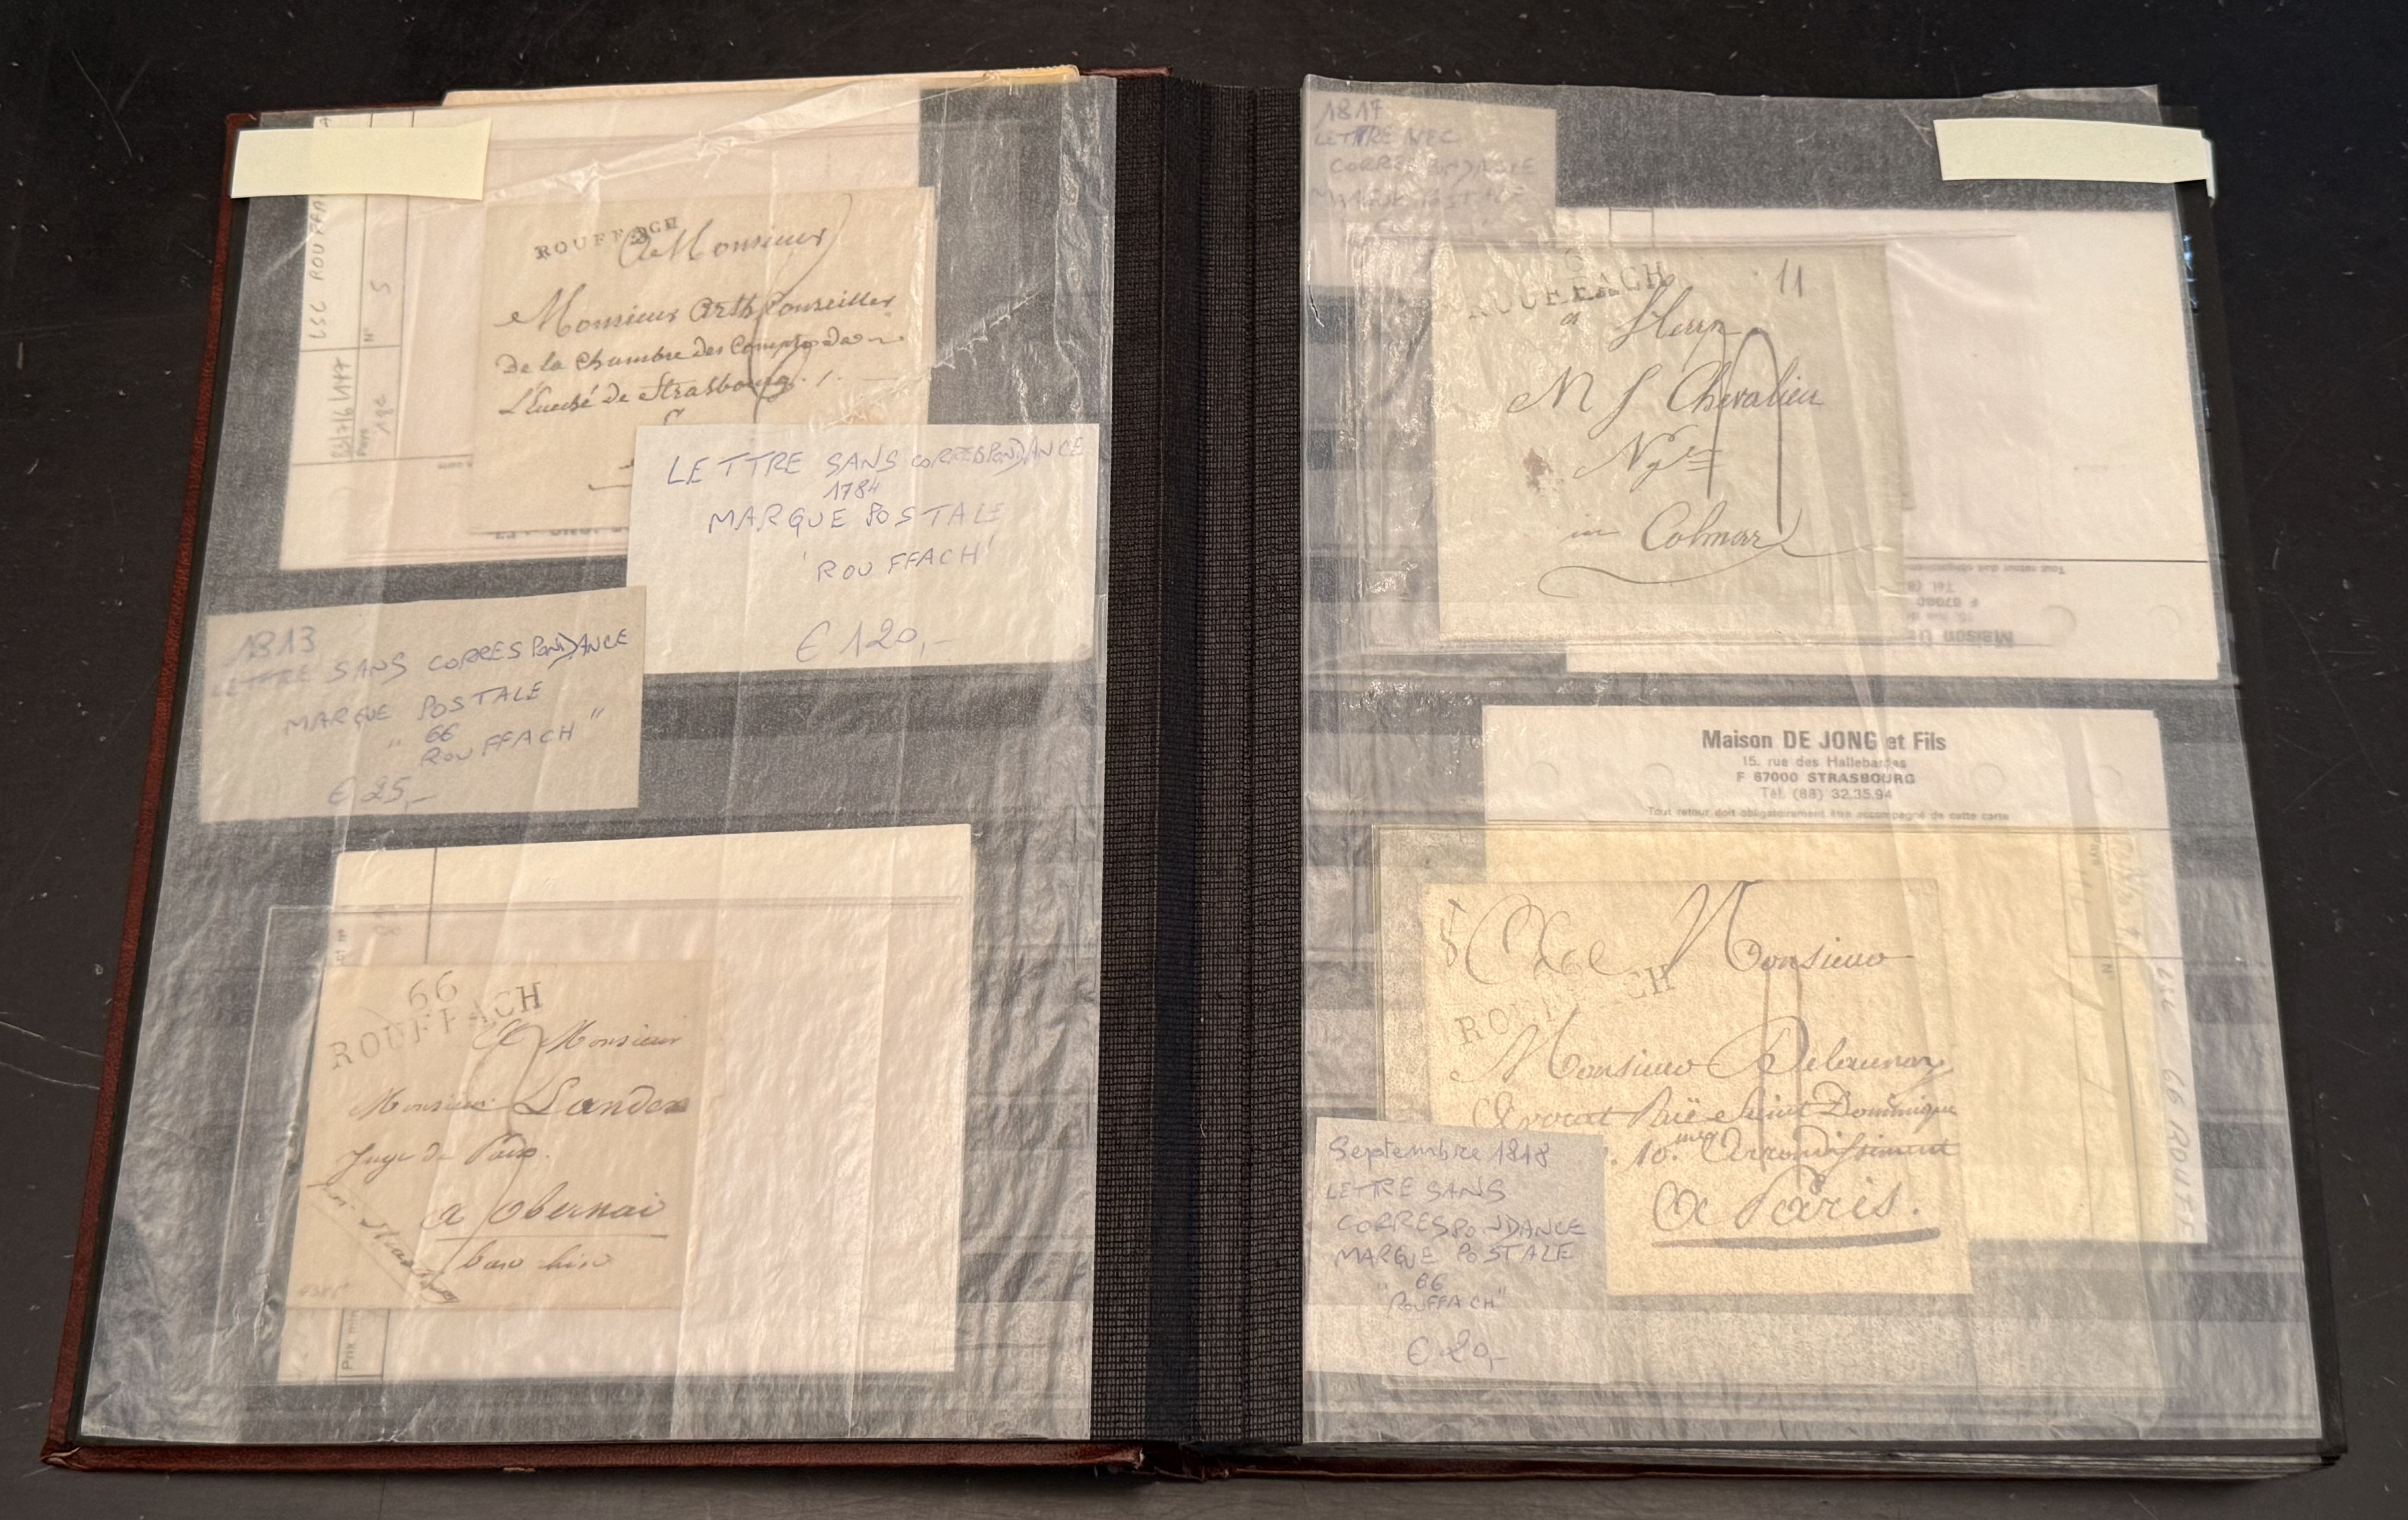 ROUFFACH
A Monsieur
Monsieur Arth Conseiller
De la Chambre des Comptes de
L'Eveché de Strasbourg
LSC ROUFFA
Pays
N° 5
LETTRE SANS CORRESPONDANCE
1784
MARQUE POSTALE
'ROUFFACH'
€ 120,-
1813
LETTRE SANS CORRESPONDANCE
MARQUE POSTALE
" 66
ROUFFACH "
€ 25,-
66
ROUFFACH
A Monsieur
Monsieur Lander
Juge de Paix
a Obernai
bas rhin
Prix
1817
LETTRE AVEC
CORRESPONDANCE
MARQUE POSTALE
ROUFFACH
11
Herrn
M J Chevalier
Ngt
in Colmar
Maison DE JONG et Fils
15, rue des Hallebardes
F 67000 STRASBOURG
Tél. (88) 32.35.94
Tout retour doit obligatoirement être accompagné de cette carte
A Monsieur
ROUFFACH
Monsieur Delaunay
Avocat Ruë Saint Dominique
10.me Arrondissement
A Paris.
LSC 66 ROUFF
Septembre 1818
LETTRE SANS
CORRESPONDANCE
MARQUE POSTALE
" 66
ROUFFACH"
€ 20,-